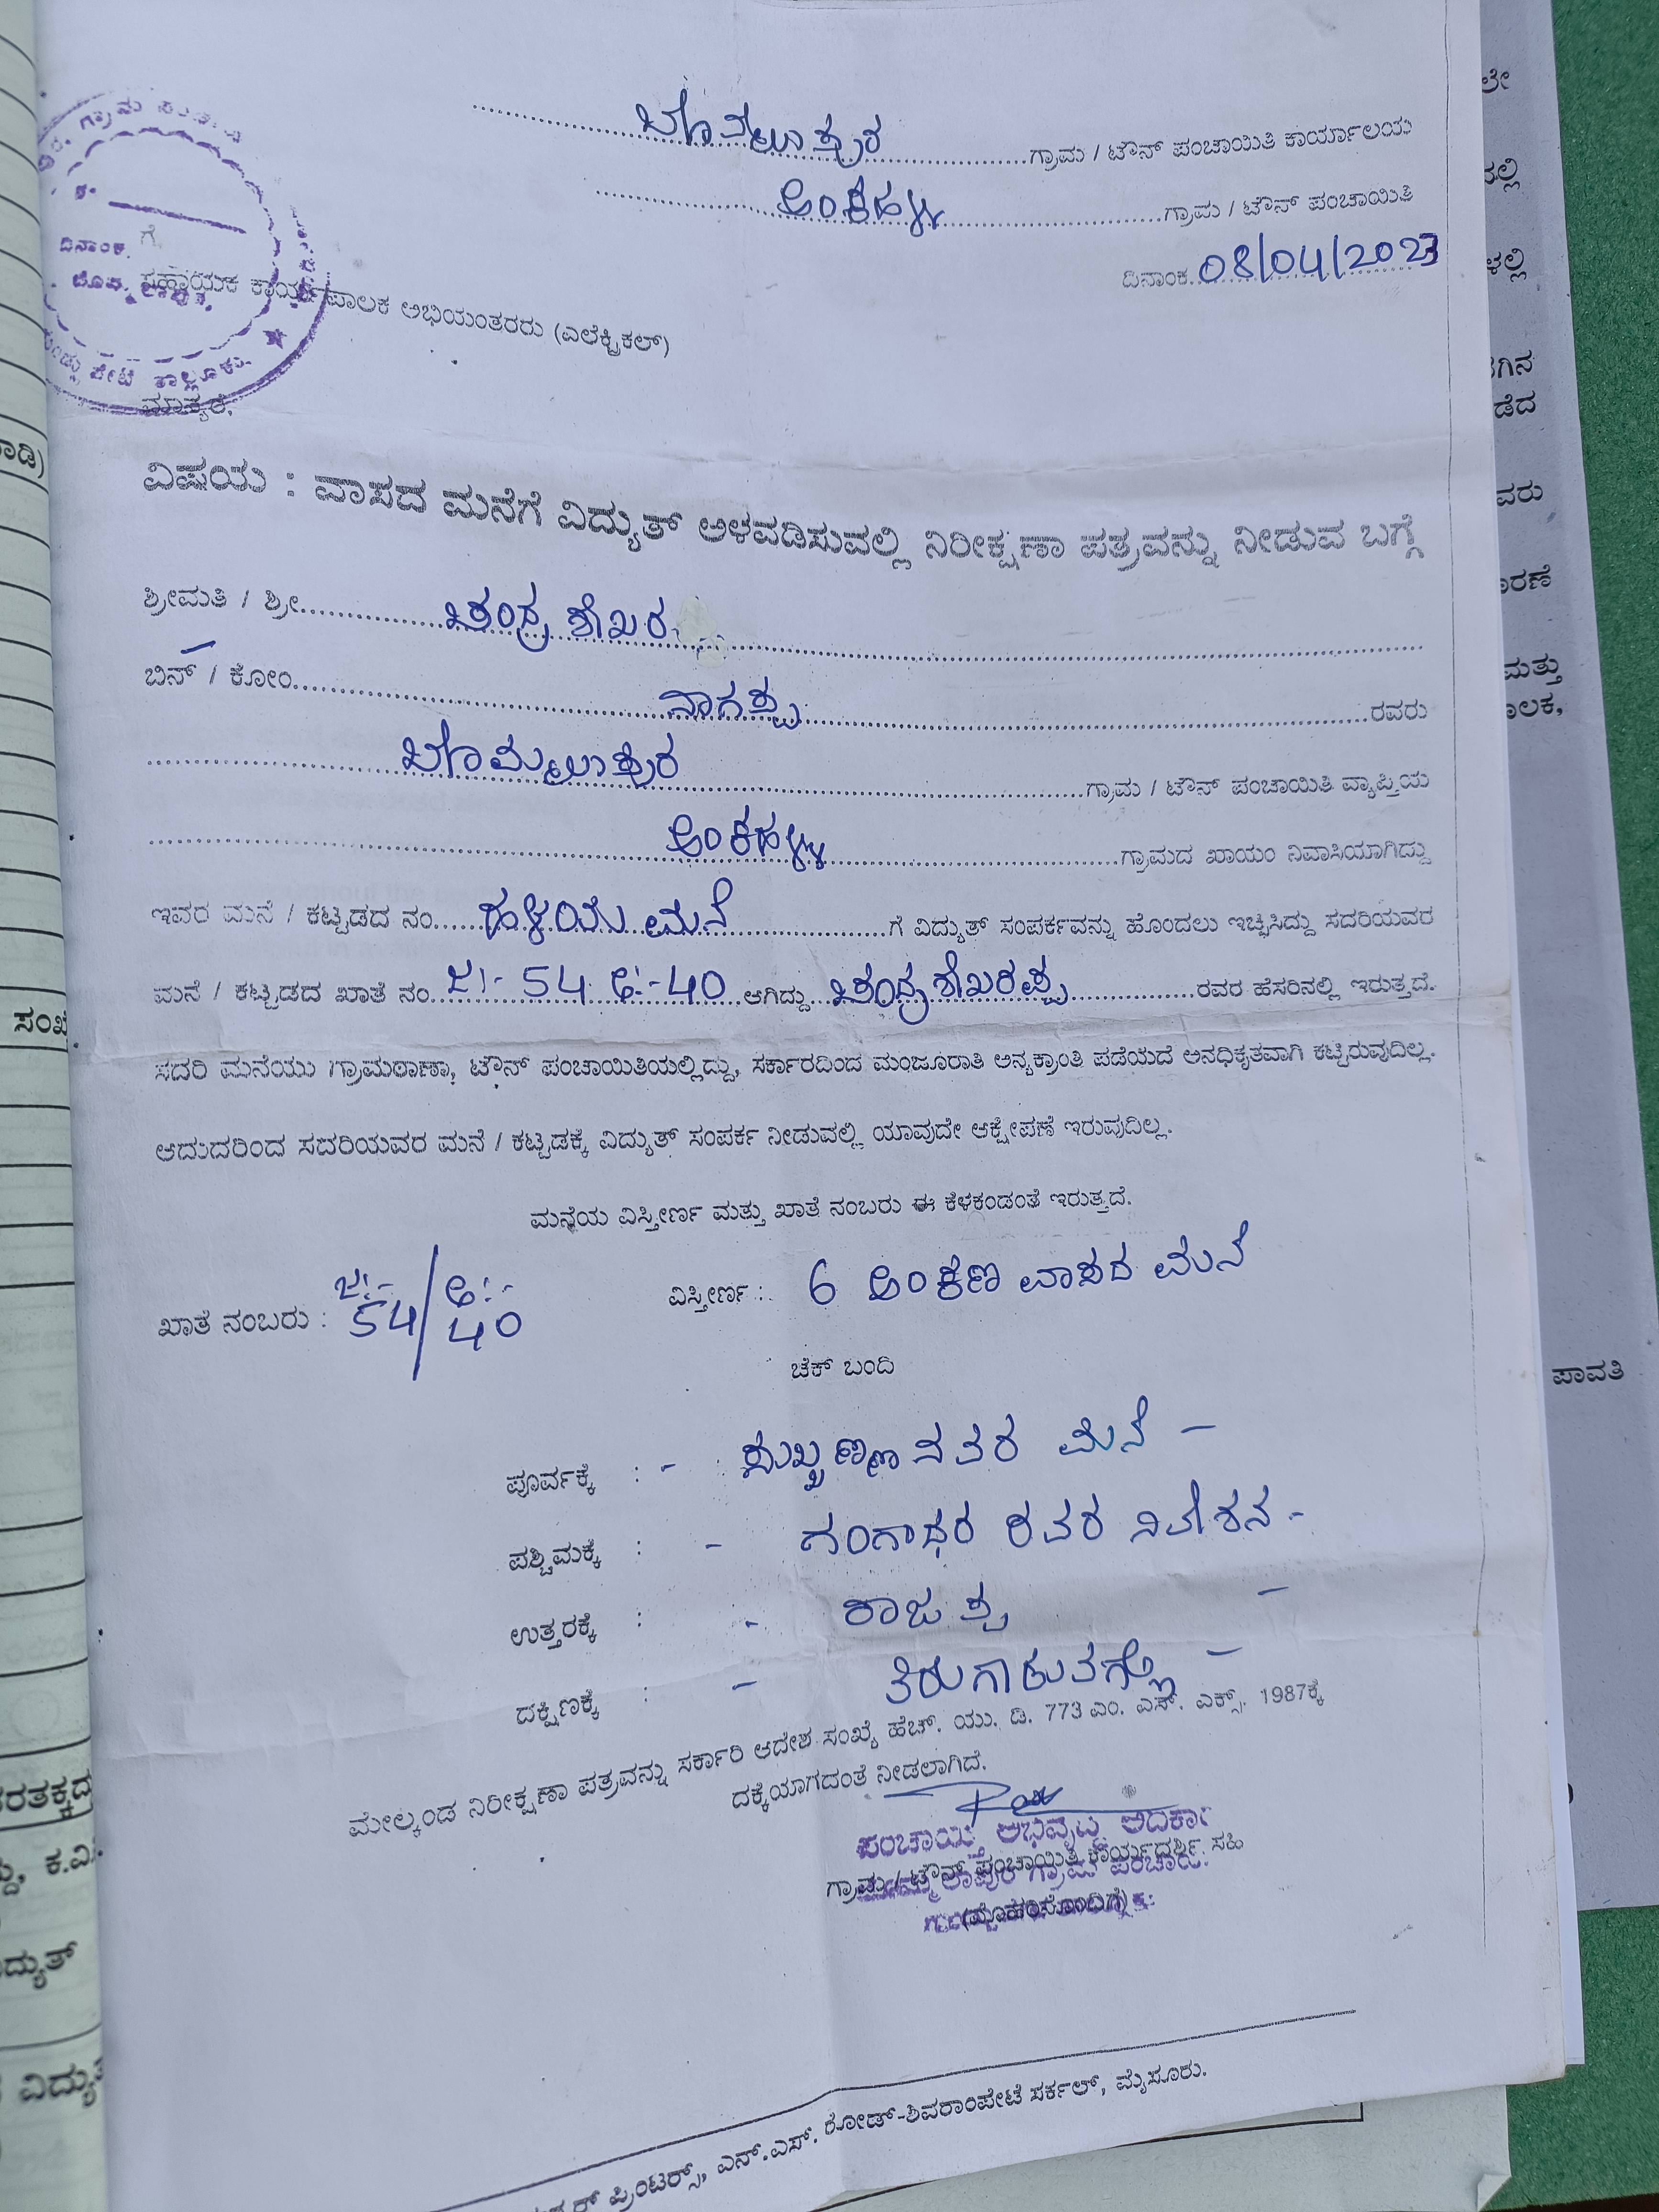 ಬೊಮ್ಮಲಾಪುರ ಗ್ರಾಮ / ಟೌನ್ ಪಂಚಾಯಿತಿ ಕಾರ್ಯಾಲಯ
ಅಂಕಹಳ್ಳಿ ಗ್ರಾಮ / ಟೌನ್ ಪಂಚಾಯಿತಿ
ದಿನಾಂಕ. 08/04/2023
ಗೆ,
ದಿನಾಂಕ.
ಸಹಾಯಕ ಕಾರ್ಯಪಾಲಕ ಅಭಿಯಂತರರು (ಎಲೆಕ್ಟ್ರಿಕಲ್)
ಮಾನ್ಯರೆ,
ವಿಷಯ : ವಾಸದ ಮನೆಗೆ ವಿದ್ಯುತ್ ಅಳವಡಿಸುವಲ್ಲಿ ನಿರೀಕ್ಷಣಾ ಪತ್ರವನ್ನು ನೀಡುವ ಬಗ್ಗೆ
ಶ್ರೀಮತಿ / ಶ್ರೀ ಚಂದ್ರಶೇಖರ
ಬಿನ್ / ಕೋಂ ನಾಗಪ್ಪ ರವರು
ಬೊಮ್ಮಲಾಪುರ ಗ್ರಾಮ / ಟೌನ್ ಪಂಚಾಯಿತಿ ವ್ಯಾಪ್ತಿಯ
ಅಂಕಹಳ್ಳಿ ಗ್ರಾಮದ ಖಾಯಂ ನಿವಾಸಿಯಾಗಿದ್ದು
ಇವರ ಮನೆ / ಕಟ್ಟಡದ ನಂ. ಹಳೆಯ ಮನೆ ಗೆ ವಿದ್ಯುತ್ ಸಂಪರ್ಕವನ್ನು ಹೊಂದಲು ಇಚ್ಛಿಸಿದ್ದು ಸದರಿಯವರ
ಮನೆ / ಕಟ್ಟಡದ ಖಾತೆ ನಂ. ಜ:- 54 ಅ:-40 ಆಗಿದ್ದು ಚಂದ್ರಶೇಖರಪ್ಪ ರವರ ಹೆಸರಿನಲ್ಲಿ ಇರುತ್ತದೆ.
ಸದರಿ ಮನೆಯು ಗ್ರಾಮಠಾಣಾ, ಟೌನ್ ಪಂಚಾಯಿತಿಯಲ್ಲಿದ್ದು, ಸರ್ಕಾರದಿಂದ ಮಂಜೂರಾತಿ ಅನ್ಯಕ್ರಾಂತಿ ಪಡೆಯದೆ ಅನಧಿಕೃತವಾಗಿ ಕಟ್ಟಿರುವುದಿಲ್ಲ.
ಆದುದರಿಂದ ಸದರಿಯವರ ಮನೆ / ಕಟ್ಟಡಕ್ಕೆ ವಿದ್ಯುತ್ ಸಂಪರ್ಕ ನೀಡುವಲ್ಲಿ ಯಾವುದೇ ಆಕ್ಷೇಪಣೆ ಇರುವುದಿಲ್ಲ.
ಮನೆಯ ವಿಸ್ತೀರ್ಣ ಮತ್ತು ಖಾತೆ ನಂಬರು ಈ ಕೆಳಕಂಡಂತೆ ಇರುತ್ತದೆ.
ಖಾತೆ ನಂಬರು : ಜ:- 54 / ಅ:- 40 ವಿಸ್ತೀರ್ಣ : 6 ಅಂಕಣ ವಾಸದ ಮನೆ
ಚೆಕ್ ಬಂದಿ
ಪೂರ್ವಕ್ಕೆ : - ಸುಬ್ಬಣ್ಣನವರ ಮನೆ -
ಪಶ್ಚಿಮಕ್ಕೆ : - ಗಂಗಾಧರ ರವರ ನಿವೇಶನ -
ಉತ್ತರಕ್ಕೆ : - ರಾಜಪ್ಪ -
ದಕ್ಷಿಣಕ್ಕೆ : - ತಿರುಗಾಡುವ -
ಮೇಲ್ಕಂಡ ನಿರೀಕ್ಷಣಾ ಪತ್ರವನ್ನು ಸರ್ಕಾರಿ ಆದೇಶ ಸಂಖ್ಯೆ ಹೆಚ್. ಯು. ಡಿ. 773 ಎಂ. ಎಸ್. ಎಕ್ಸ್. 1987ಕ್ಕೆ
ದಕ್ಕೆಯಾಗದಂತೆ ನೀಡಲಾಗಿದೆ.
ಪಂಚಾಯ್ತಿ ಅಭಿವೃದ್ಧಿ ಅಧಿಕಾರಿ
ಗ್ರಾಮ / ಟೌನ್ ಪಂಚಾಯಿತಿ ಕಾರ್ಯದರ್ಶಿ ಸಹಿ
(ಮೊಹರಿನೊಂದಿಗೆ)
ಪ್ರಿಂಟರ್ಸ್, ಎನ್.ಎಸ್. ರೋಡ್-ಶಿವರಾಂಪೇಟೆ ಸರ್ಕಲ್, ಮೈಸೂರು.
ಪಾವತಿ